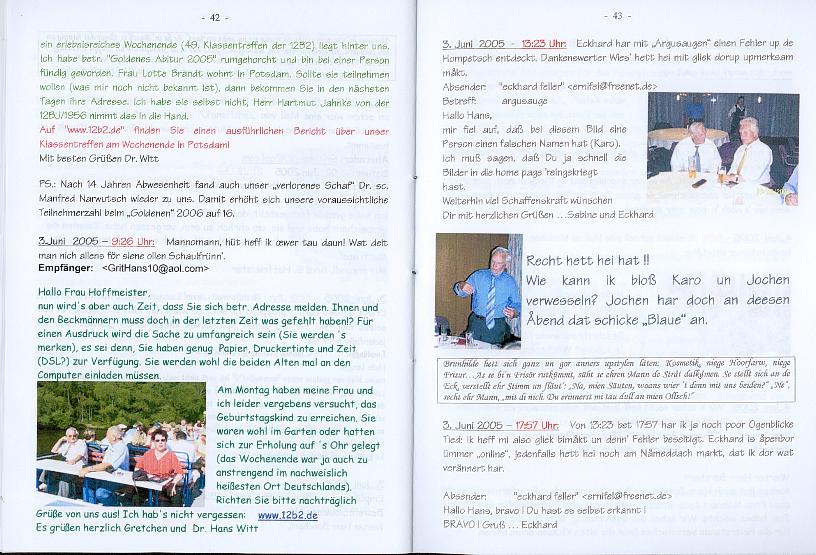 - 42 -
ein erlebnisreiches Wochenende (49. Klassentreffen der 12B2) liegt hinter uns.
Ich habe betr. "Goldenes Abitur 2005" rumgehorcht und bin bei einer Person
fündig geworden. Frau Lotte Brandt wohnt in Potsdam. Sollte sie teilnehmen
wollen (was mir noch nicht bekannt ist), dann bekommen Sie in den nächsten
Tagen ihre Adresse. Ich habe sie selbst nicht, Herr Hartmut Jahnke von der
12BJ/1956 nimmt das in die Hand.
Auf "www.12b2.de" finden Sie einen ausführlichen Bericht über unser
Klassentreffen am Wochenende in Potsdam!
Mit besten Grüßen Dr. Witt
PS.: Nach 14 Jahren Abwesenheit fand auch unser „verlorenes Schaf" Dr. sc.
Manfred Narwutsch wieder zu uns. Damit erhöht sich unsere voraussichtliche
Teilnehmerzahl beim „Goldenen" 2006 auf 16.
3.Juni 2005 – 9:26 Uhr: Mannomann, hüt heff ik œwer tau daun! Wat deit
man nich allens för siene ollen Schaulfrünn'.
Empfänger: <GritHans10@aol.com>
Hallo Frau Hoffmeister,
nun wird's aber auch Zeit, dass Sie sich betr. Adresse melden. Ihnen und
den Beckmännern muss doch in der letzten Zeit was gefehlt haben!? Für
einen Ausdruck wird die Sache zu umfangreich sein (Sie werden 's
merken), es sei denn, Sie haben genug Papier, Druckertinte und Zeit
(DSL?) zur Verfügung. Sie werden wohl die beiden Alten mal an den
Computer einladen müssen.
Am Montag haben meine Frau und
ich leider vergebens versucht, das
Geburtstagskind zu erreichen. Sie
waren wohl im Garten oder hatten
sich zur Erholung auf 's Ohr gelegt
(das Wochenende war ja auch zu
anstrengend im nachweislich
heißesten Ort Deutschlands),
Richten Sie bitte nachträglich
Grüße von uns aus! Ich hab's nicht vergessen: www.12b2.de
Es grüßen herzlich Gretchen und Dr. Hans Witt
- 43 -
3. Juni 2005 – 13:23 Uhr: Eckhard har mit „Argusaugen" einen Fehler up de
Hompetsch entdeckt. Dankenswerter Wies' hett hei mit gliek dorup upmerksam
måkt.
Absender: "eckhard feller" <ernifel@freenet.de>
Betreff: argusauge
Hallo Hans,
mir fiel auf, daß bei diesem Bild eine
Person einen falschen Namen hat (Karo).
Ich muß sagen, daß Du ja schnell die
Bilder in die home page 'reingekriegt
hast.
Weiterhin viel Schaffenskraft wünschen
Dir mit herzlichen Grüßen ...Sabine und Eckhard
Recht hett hei hat !!
Wie kann ik bloß Karo un Jochen
verwesseln? Jochen har doch an deesen
Åbend dat schicke „Blaue" an.
Brunhilde hett sich ganz un gor anners upstylen låten: Kosmetik, niege Hoorfarw, niege
Frisur...As se bi'n Frisör rutkümmt, süht se ehren Mann de Stråt dalkåmen. Se stellt sich an de
Eck, verstellt ehr Stimm un fläut': „Na, mien Säuten, woans wier 't denn mit uns beiden?" „Ne",
secht ehr Mann, „mit di nich. Du erinnerst mi tau dull an mien Ollsch!"
3. Juni 2005 – 17:57 Uhr: Von 13:23 bet 17:57 har ik ja noch poor Ogenblicke
Tied: Ik heff mi also gliek bimåkt un denn' Fehler beseitigt. Eckhard is åpenbor
ümmer „online", jedenfalls hett hei noch am Nåmeddach markt, dat ik dor wat
verännert har.
Absender: "eckhard feller" <ernifel@freenet.de>
Hallo Hans, bravo ! Du hast es selbst erkannt !
BRAVO ! Gruß ... Eckhard